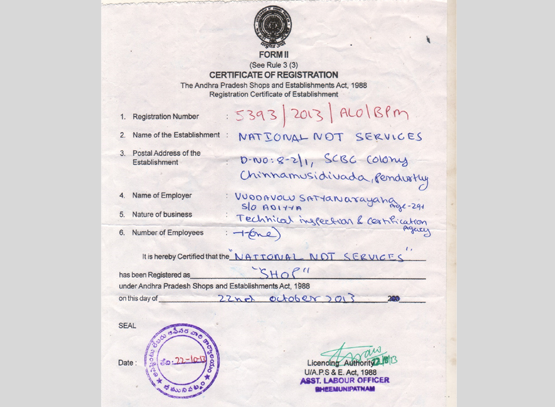 FORM II
(See Rule 3 (3)
CERTIFICATE OF REGISTRATION
The Andhra Pradesh Shops and Establishments Act, 1988
Registration Certificate of Establishment
1. Registration Number : 5393/2013/ALO/BPM
2. Name of the Establishment : NATIONAL NDT SERVICES
3. Postal Address of the Establishment : D-NO: 8-2/1, SCBC Colony
Chinnamusidivada, Pendurthy
4. Name of Employer : VUDDAVOLU SATYANARAYANA
S/O ADITYA
5. Nature of business : Technical inspection & certification agency
6. Number of Employees : (one)
It is hereby Certified that the "NATIONAL NDT SERVICES"
has been Registered as "SHOP"
under Andhra Pradesh Shops and Establishments Act, 1988
on this day of 22nd October 2013
SEAL
Date :
22-10-13
Licencing Authority
U/A.P.S & E. Act, 1988
ASST. LABOUR OFFICER
BHEEMUNIPATNAM